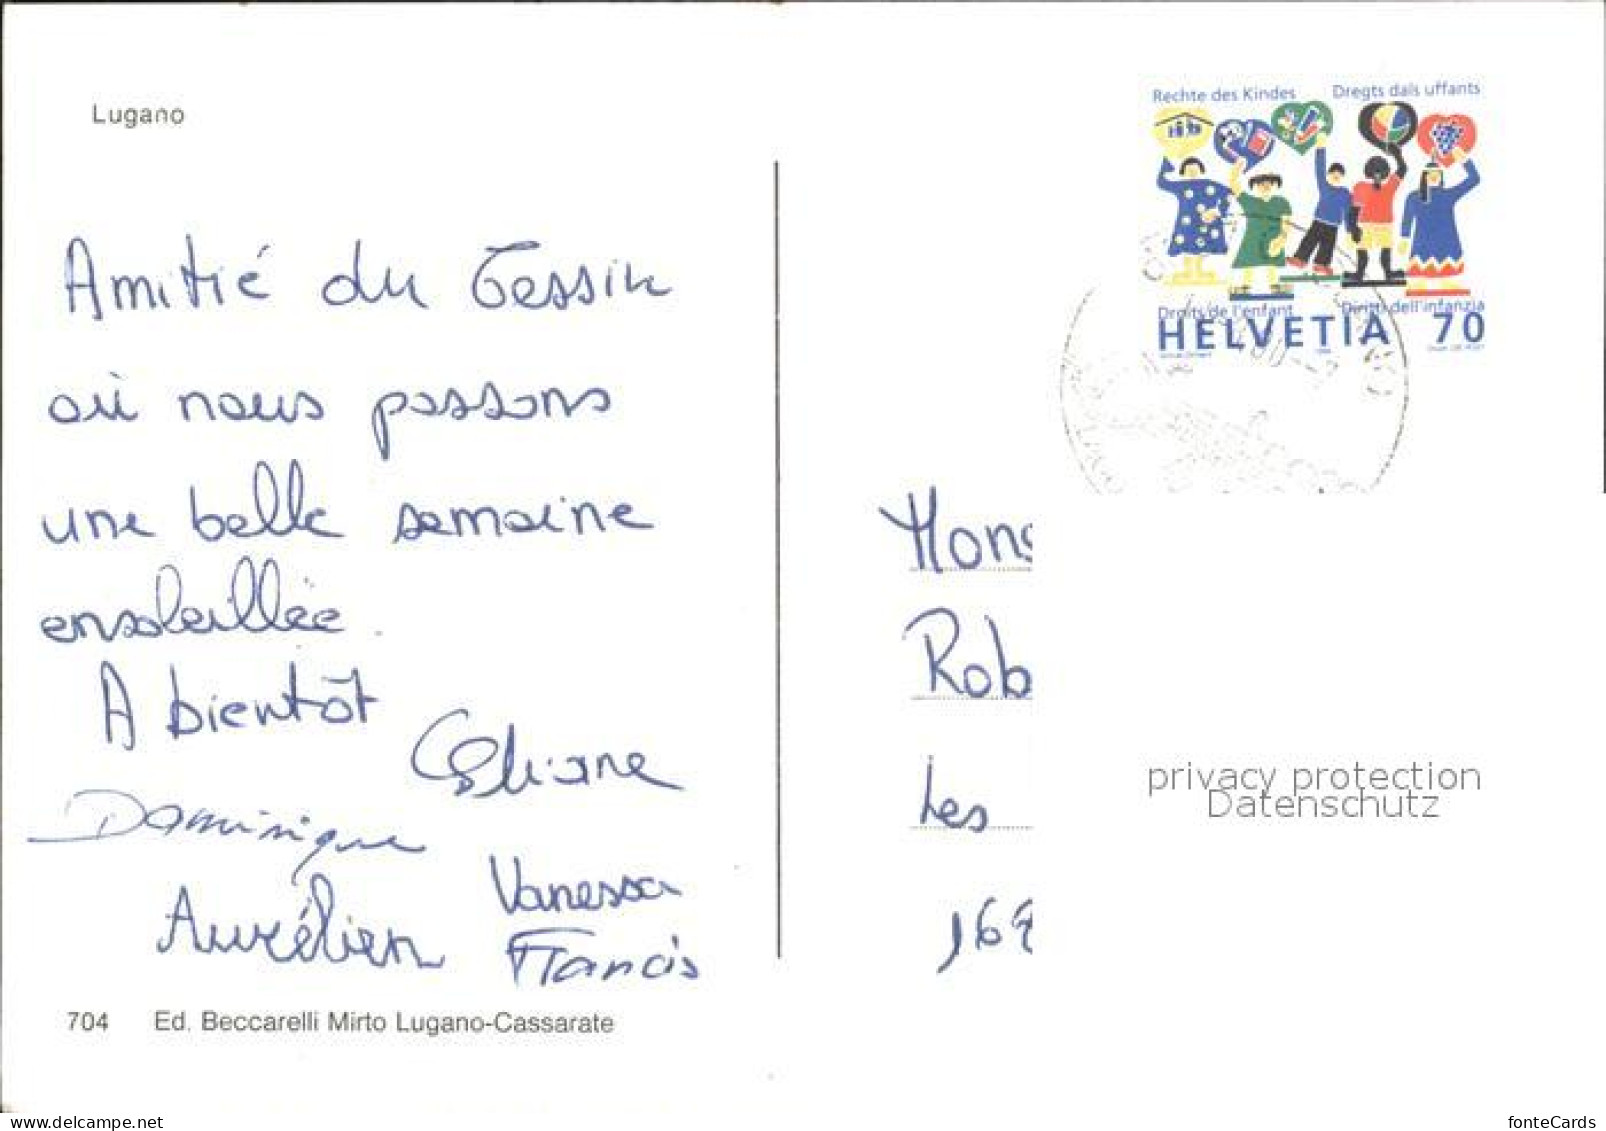 Lugano
Amitié du Tessin
où nous passons
une belle semaine
ensoleillée.
A bientôt
Dominique
Aurélien
Vanessa
Francis
704 Ed. Beccarelli Mirto Lugano-Cassarate
Rechte des Kindes Dregts dals uffants
Droits de l'enfant Diritti dell'infanzia
HELVETIA 70
Mons
Rob
Les
169
privacy protection
Datenschutz
delcampe.net
fonteCards